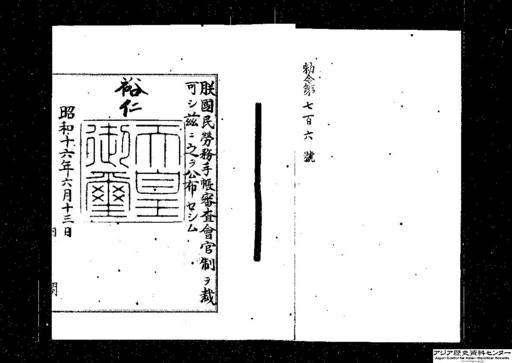 勅令第七百六號
朕國民勞務手帳審査會官制ヲ裁
可シ茲ニ之ヲ公布セシム
裕仁
天皇
御璽
昭和十六年六月十三日
アジア歴史資料センター
Japan Center for Asian Historical Records